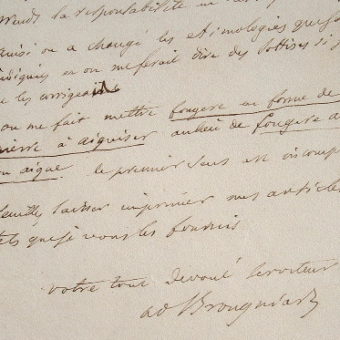 prends la responsabilité
ainsi on a changé les etimologies que j'ai
indiqués et on me ferait dire des sottises si je
ne les corrigeais
on me fait mettre fougere en forme de
pierre à aiguiser au lieu de fougere de
en aigue le premier sens est incomp
Veuillez laisser imprimer mes articles
tels que je vous les fournis
votre tout devoué serviteur
ad Brongniart